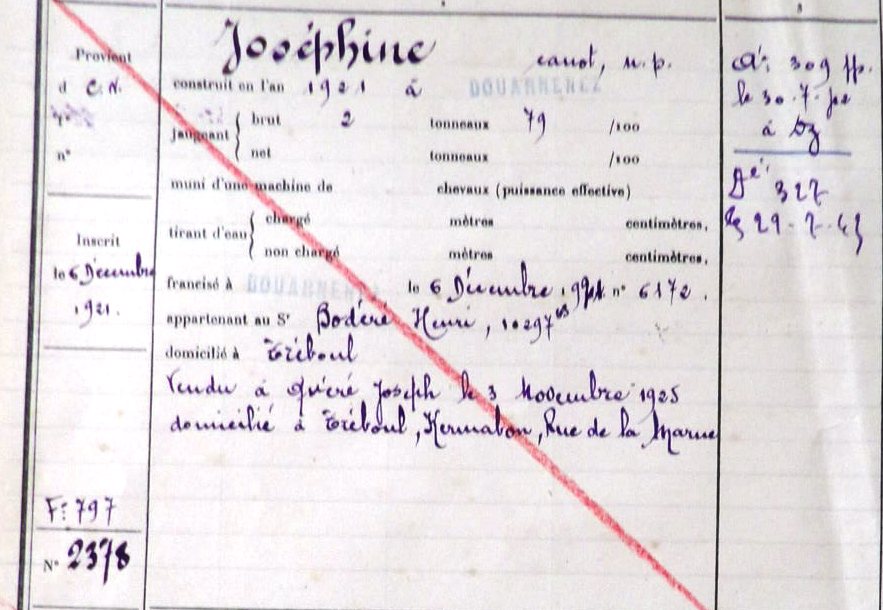 Provient
d C.N.
n°
Inscrit
le 6 Décembre
1921.
F: 797
N° 2378
Joséphine canot, n.p.
construit en l'an 1921 à DOUARNENEZ
jaugeant { brut 2 tonneaux 79 /100
net tonneaux /100
muni d'une machine de chevaux (puissance effective)
tirant d'eau { chargé mètres centimètres.
non chargé mètres centimètres.
francisé à DOUARNENEZ le 6 Décembre 1921 n° 6172.
appartenant au Sr Bodéré Henri, 10297
domicilié à Tréboul
Vendu à Quéré Joseph le 3 Novembre 1925
domicilié à Tréboul, Kermabon, Rue de la Marne
309
le 30.7.
à Dz
327
29-7-43